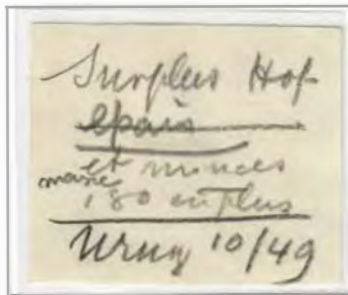 Surplus Hof
épais
et minces
180 en plus
Uruq 10/49